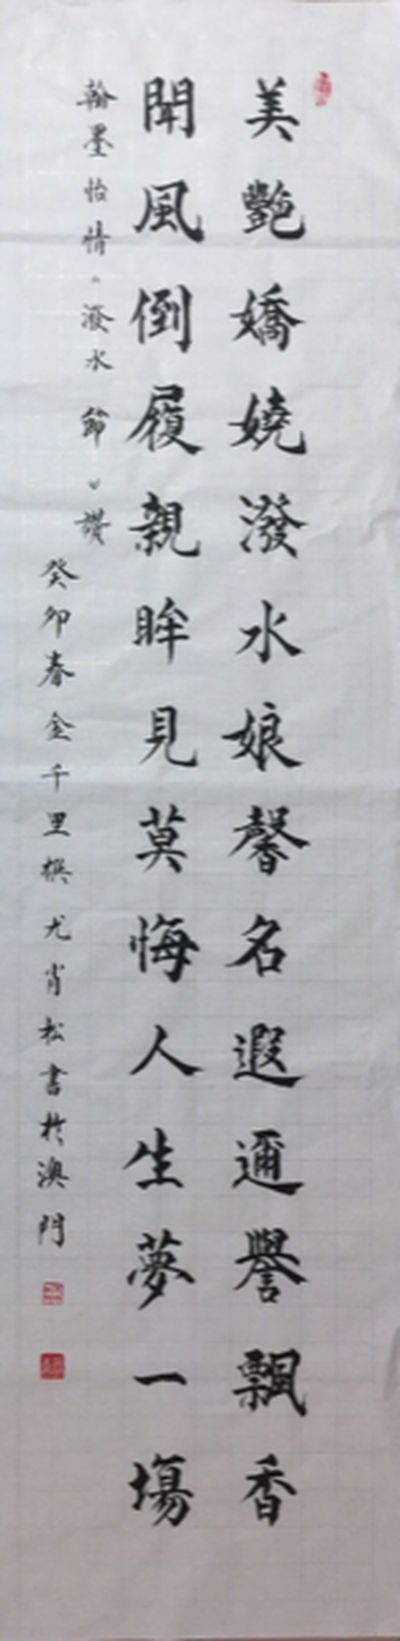 美艷嬌嬈潑水娘馨名遐邇譽飄香
聞風倒履親眸見莫悔人生夢一場
翰墨怡情潑水節讚
癸卯春金千里撰尤肖松書於澳門